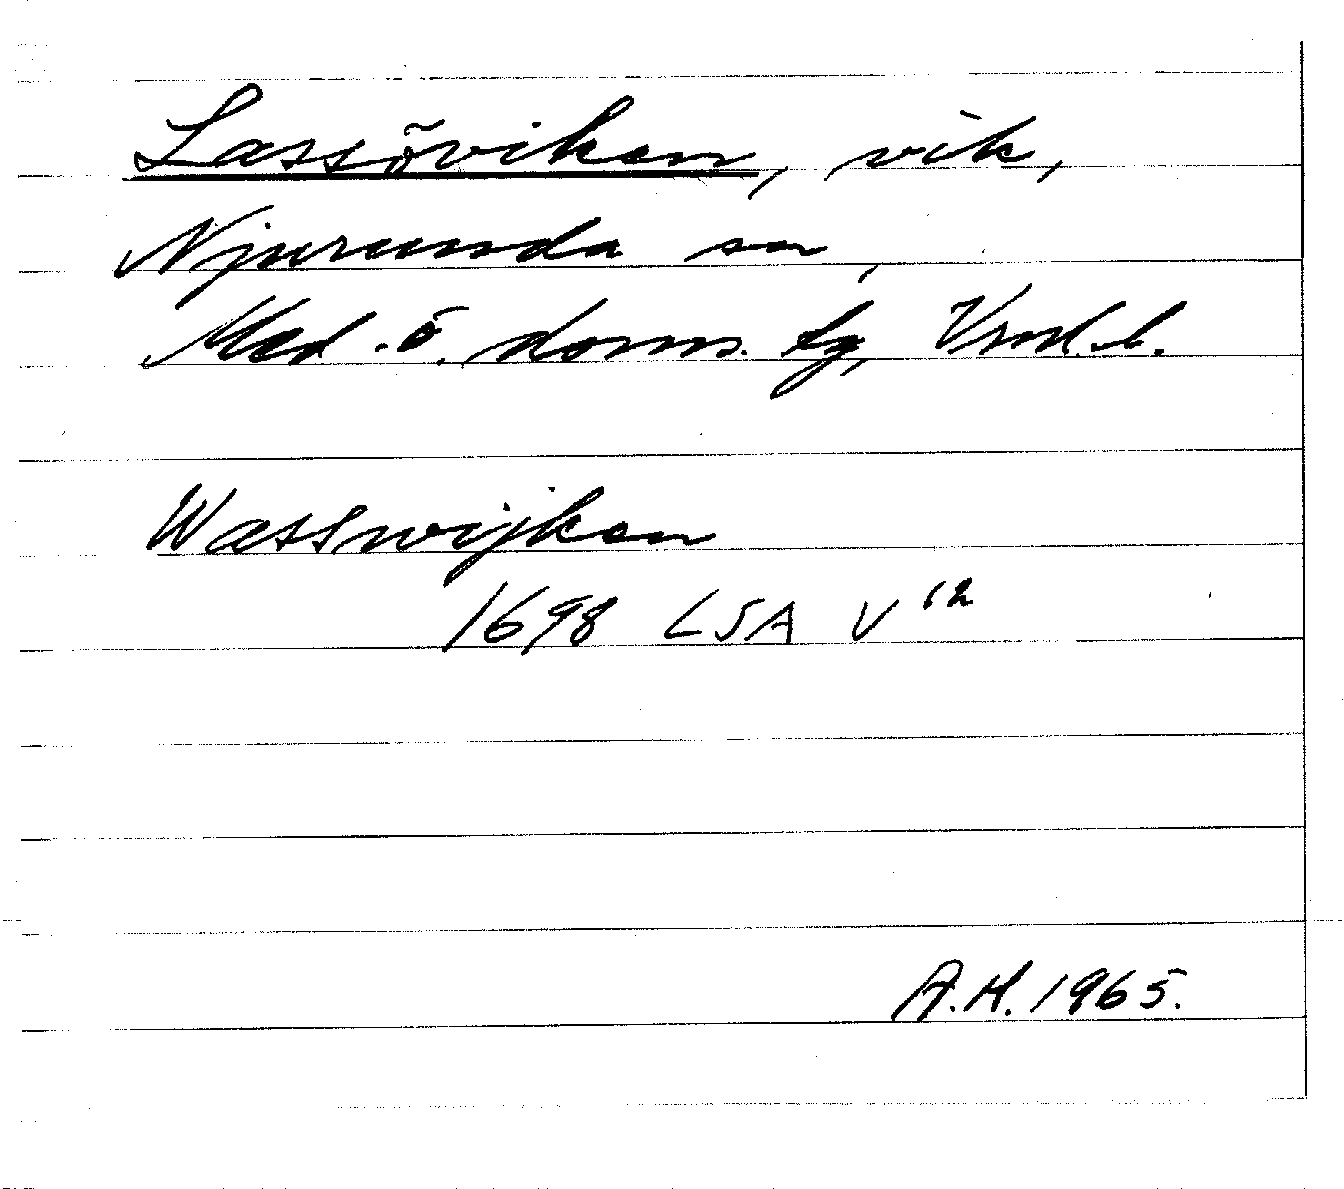 Lassöviken, vik,
Njurunda sn,
Med. ö. doms. tg, Vrnl. l.
Wasswijken
1698 LSA V 12
A.H. 1965.